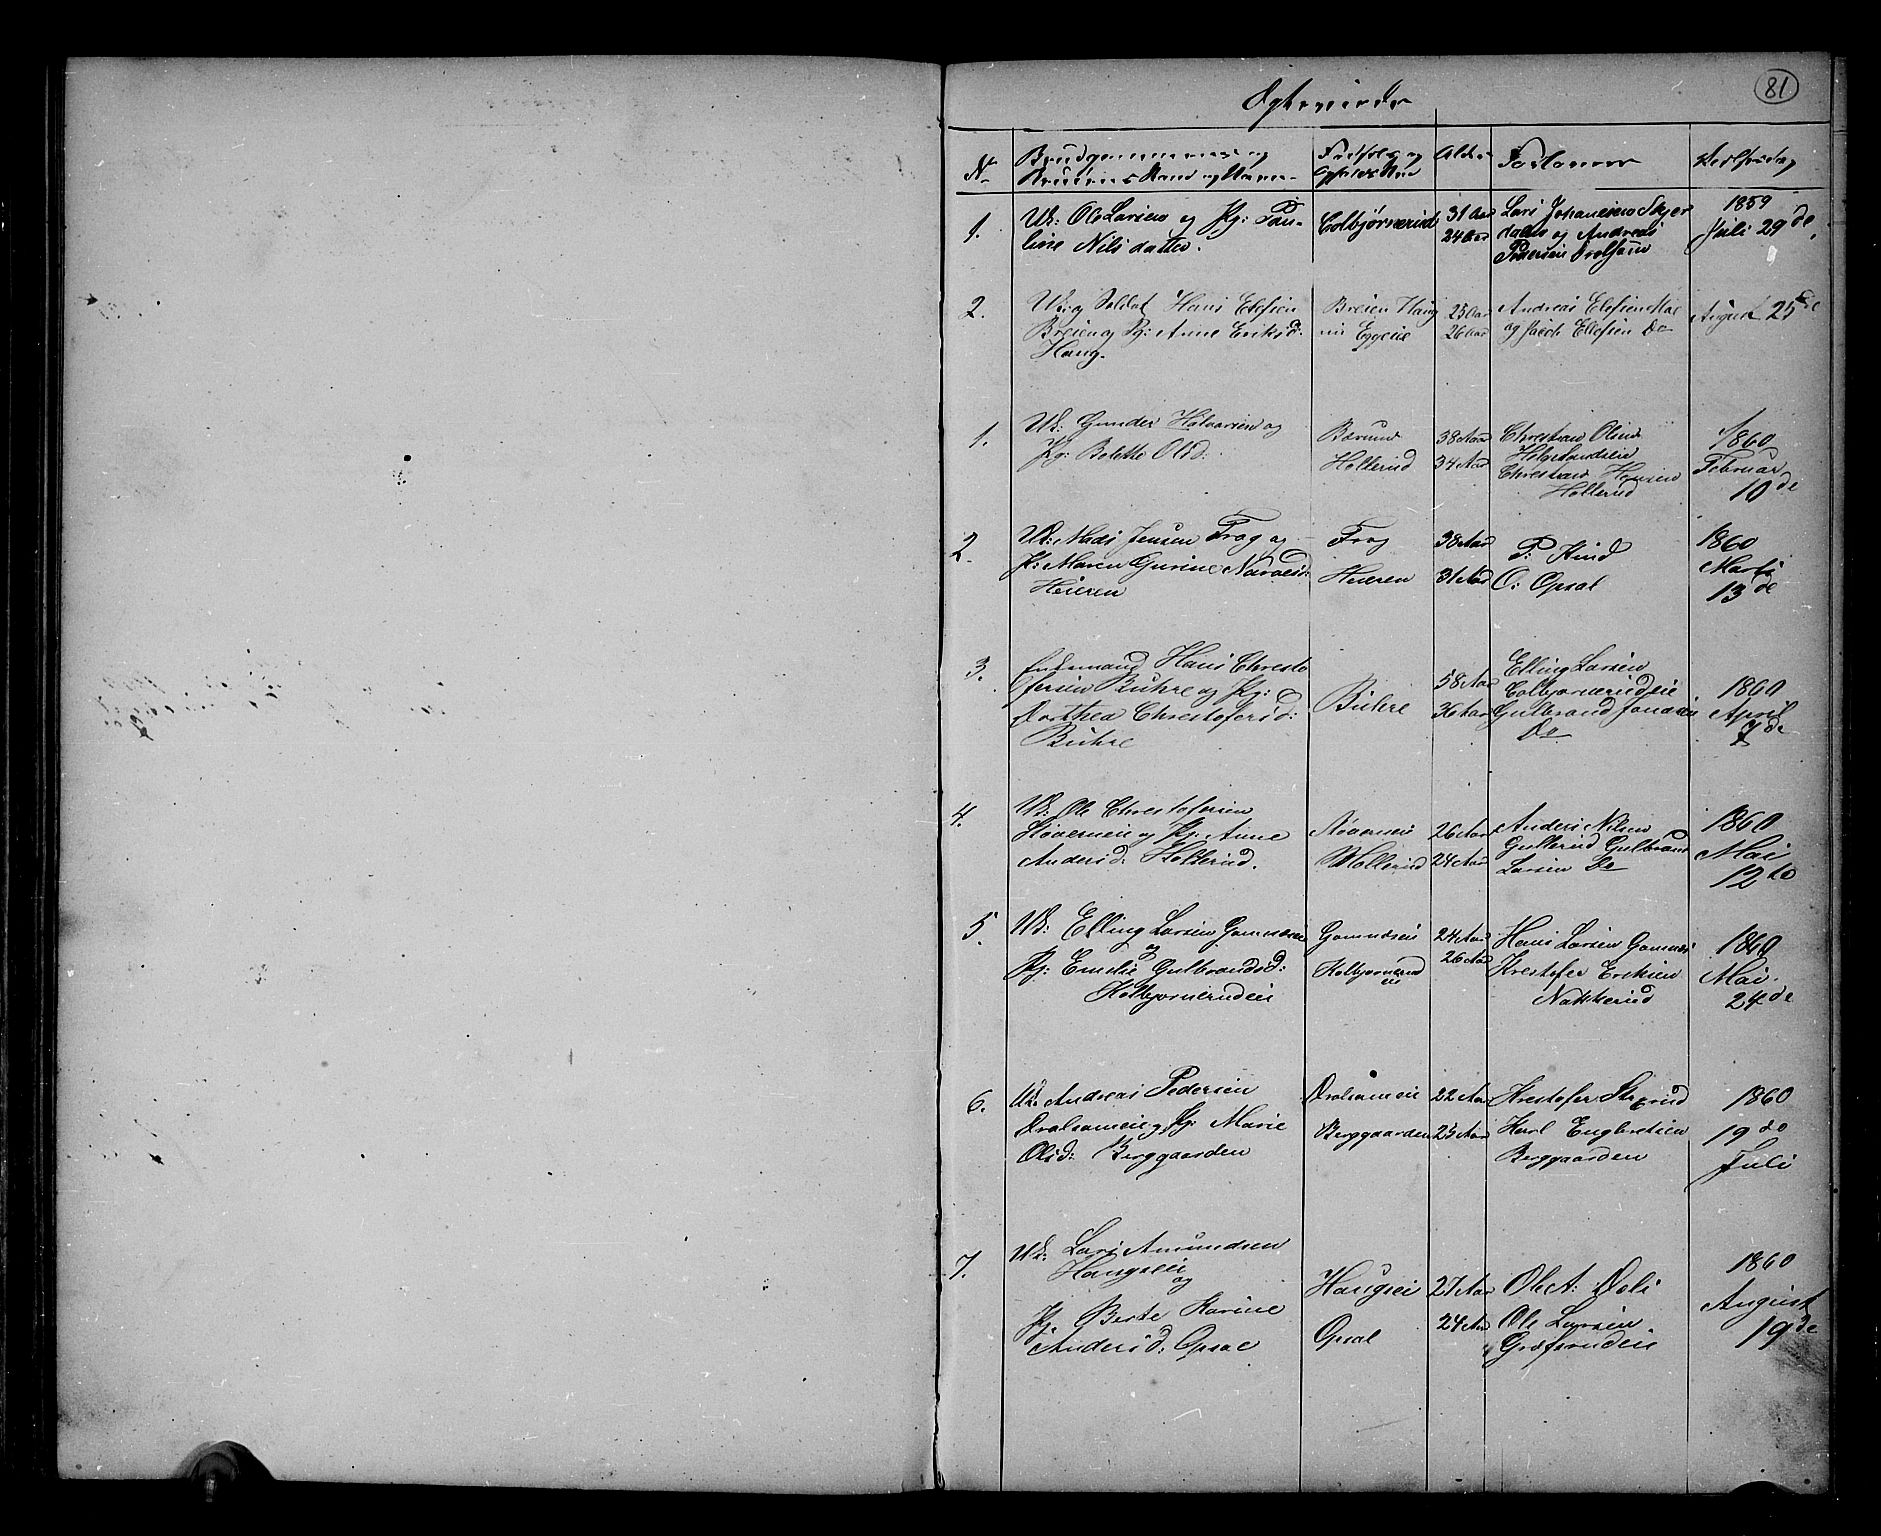 81
Ægteviede
No
Brudgommens og
Brudens Stand og Navn
Fødested og
Opholdssted
Alder
Forlovere
Vielsesdag
1.
Uk: Ole Larsen og Pg: Pau-
line Nilsdatter.
Colbjørnsrud
31 Aar
24 Aar
Lars Johanesen Skjer
dalen og Andreas
Pedersen Dralsam
1859
Juli 29de
2.
Uk: og Soldat Hans Elefsen
Breien og Pg: Anne Eriksd:
Haug.
Breien Haug
Eggeie
25 Aar
26 Aar
Andreas Elefsen
og Jacob Elefsen Do
August 25de
1.
Uk: Gunder Halvorsen og
Pg: Bolette Olsd:
Bærum
Hollerud
38 Aar
34 Aar
Chrestian Olsen
Helgelandseie
Chrestian Hansen
Hollerud
1860
Februar
10de
2.
Uk: Mads Jensen Frog og
P: Maren Gurine
Heieren
Frog
Heieren
38 Aar
31 Aar
P: Hind
O: Opsal
1860
Marts
13de
3.
Enkemand Hans Chresto
fersen Buhre og Pg:
Dorthea Chrestofersd:
Buhre
Buhre
58 Aar
36 Aar
Elling Larsen
Colbjornsrudeie
Gulbrand Jonassen
Do
1860
April
de
4.
Uk: Ole Chrestofersen
Støverneie og Pg: Anne
Andersd: Hollerud.
Hollerud
26 Aar
24 Aar
Anders Nilsen
Gullerud Gulbrand
Larsen Do
1860
Mai
12te
5.
Uk: Elling Larsen Gomnæseie
og
Pg: Emelie Gulbrandsd:
Kolbjornsrudeie
Gomnæseie
Kolbjornsrud
eie
24 Aar
26 Aar
Hans Larsen Gomnæs
Krestofer Eriksen
Nakkerud
1860
Mai.
24de
6.
Uk: Andreas Pedersen
Dralsameie og Pg: Marie
Olsd: Berggaarden
Dralsameie
Berggaarden
22 Aar
25 Aar
Krestofer
Karl Engbretsen
Berggaarden
1860
19de
Juli
7.
Uk: Lars Amundsen
Haugseie
og
Pg. Berte Karine
Andersd: Opsal
Haugseie
Opsal
27 Aar
24 Aar
Ole A: Deli
Ole Larsen
Græfsrudeie
1860
August
19de